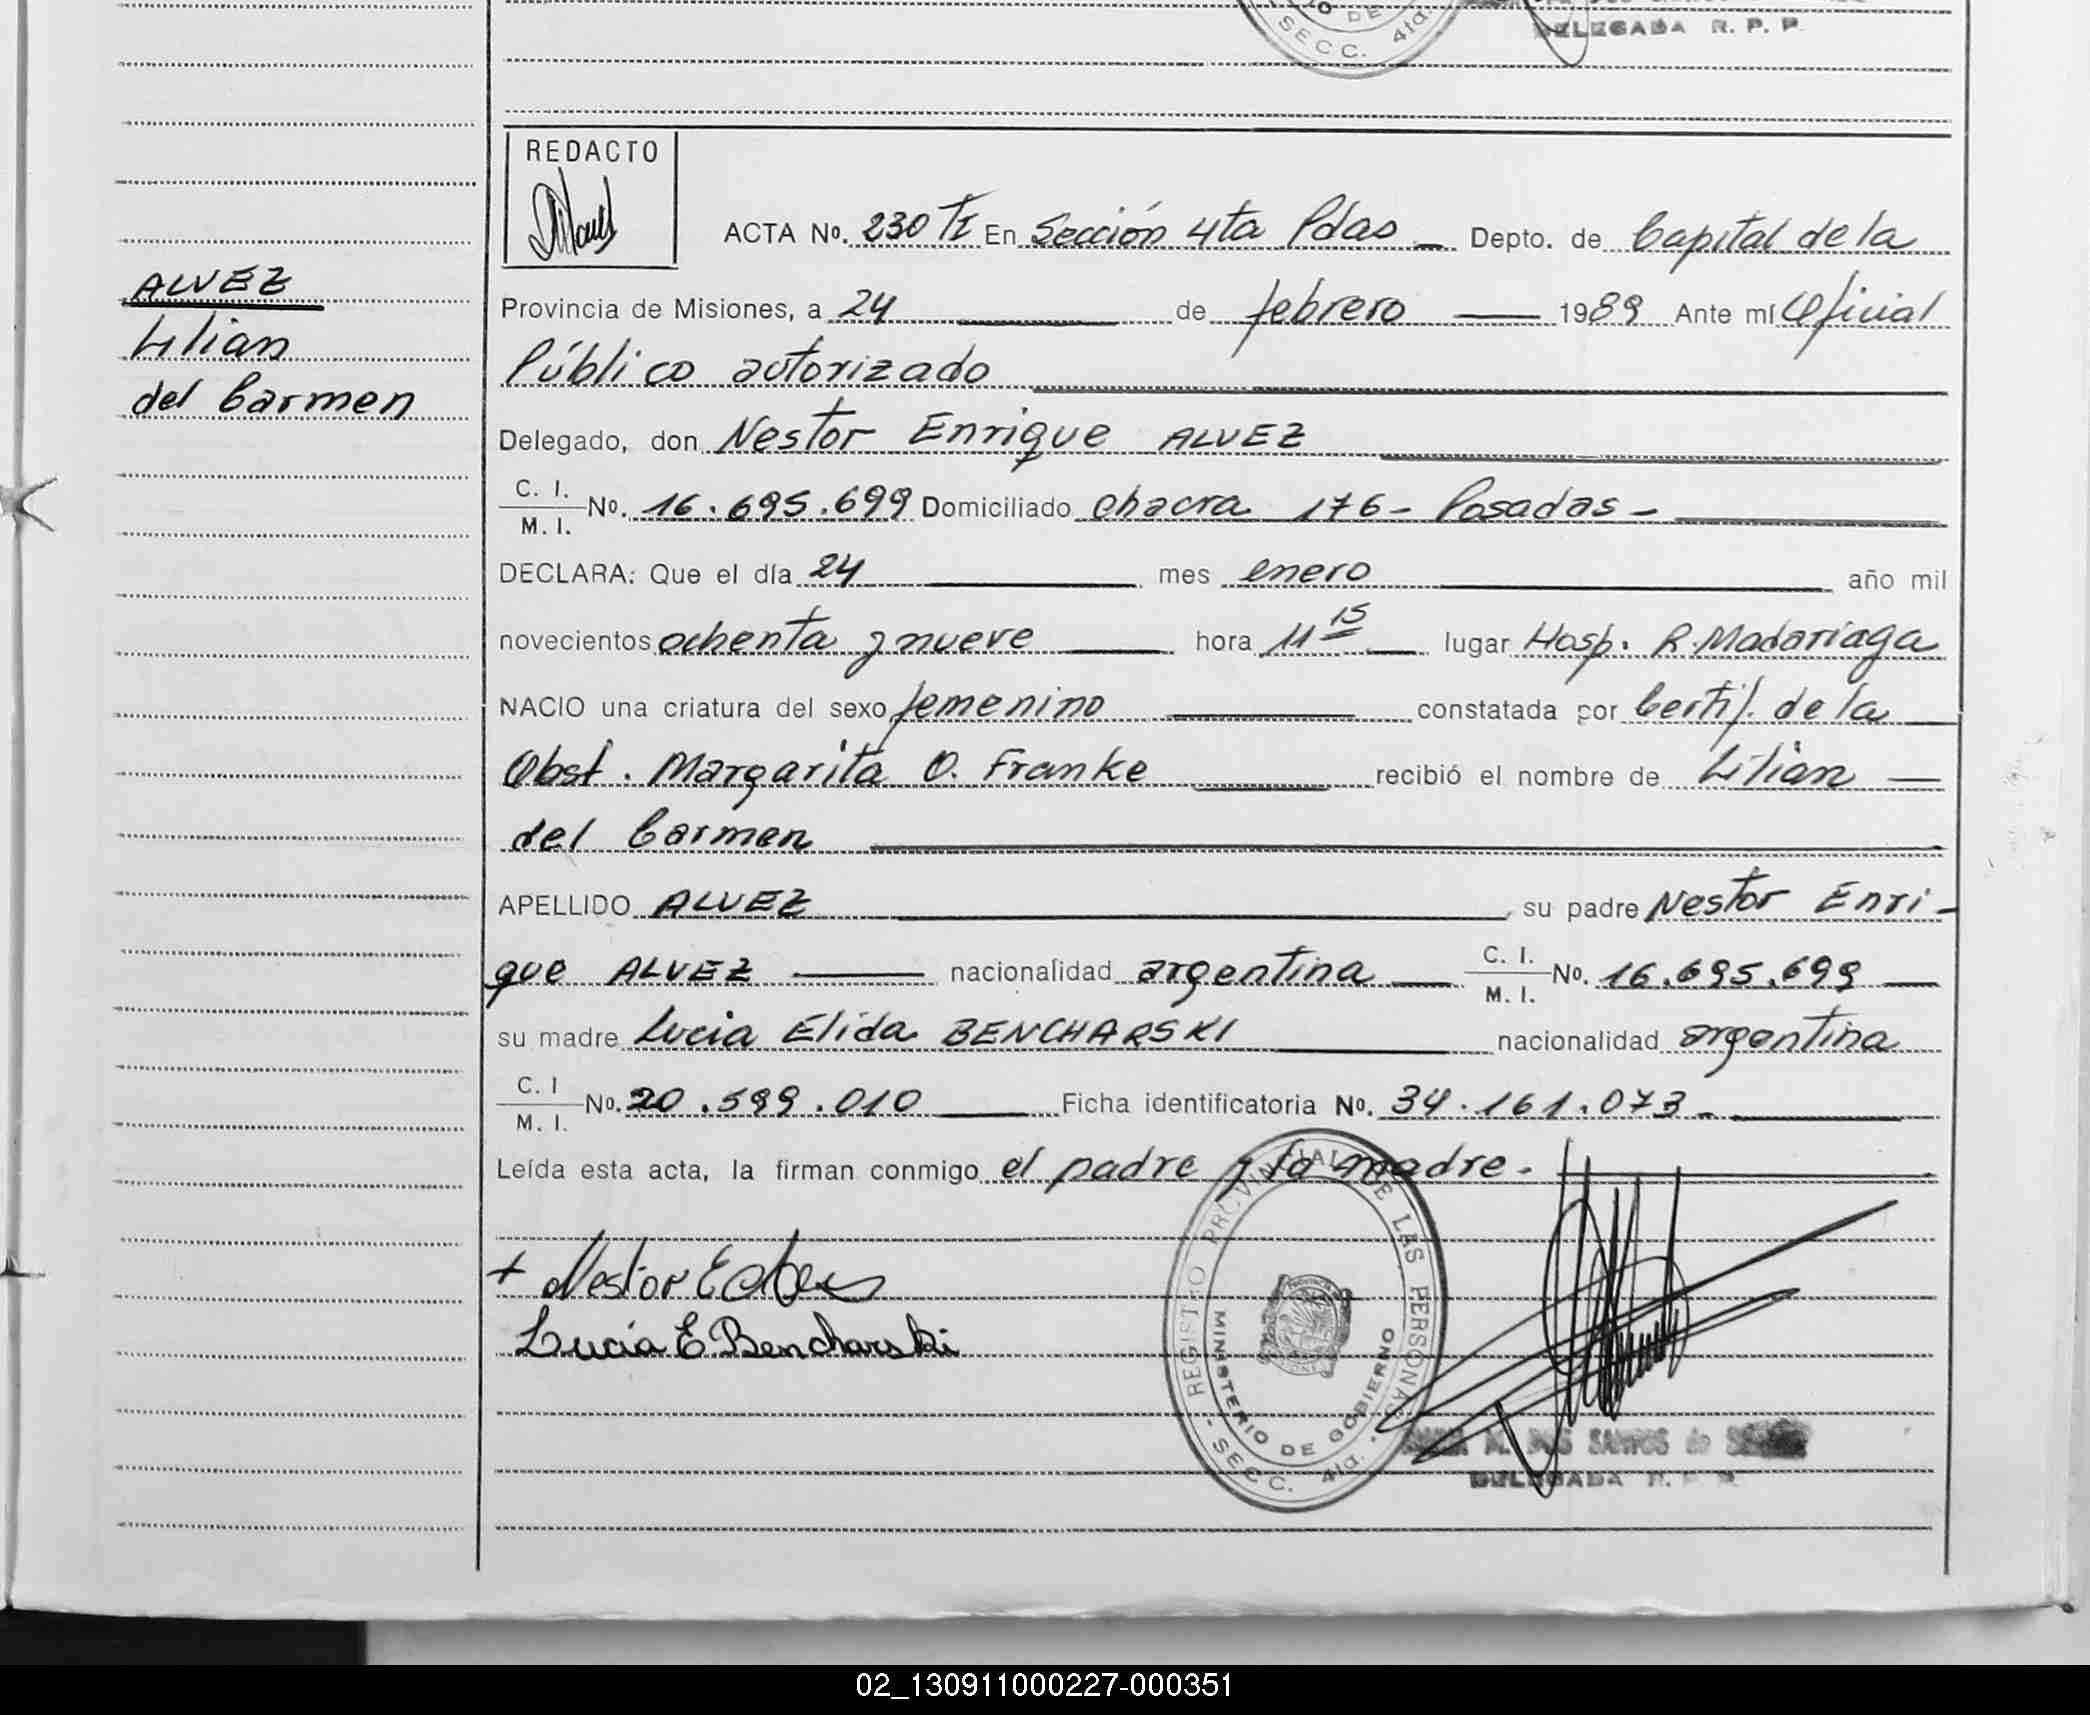 DELEGADA R. P. P.
SECC. 4ta.
REDACTO
ACTA No. 230 TI En Sección 4ta Pdas Depto. de Capital de la
ALVEZ
Lilian
del Carmen
Provincia de Misiones, a 24 de febrero 1989 Ante mí Oficial
Público autorizado
Delegado, don Nestor Enrique ALVEZ
C. I.
M. I. No. 16.695.699 Domiciliado chacra 176 - Posadas -
DECLARA: Que el día 24 mes enero año mil
novecientos ochenta y nueve hora 11 15 lugar Hosp. R. Madariaga
NACIO una criatura del sexo femenino constatada por Certif. de la
Obst. Margarita O. Franke recibió el nombre de Lilian
del Carmen
APELLIDO ALVEZ, su padre Nestor Enri-
que ALVEZ nacionalidad argentina C. I.
M. I. No. 16.695.699
su madre Lucia Elida BENCHARSKI nacionalidad argentina
C. I
M. I. No. 20.599.010 Ficha identificatoria No. 34.161.073 -
Leída esta acta, la firman conmigo el padre y la madre.
+ Nestor E
Lucia E Bencharski
REGISTRO PROVINCIAL DE LAS PERSONAS
MINISTERIO DE GOBIERNO
- SECC. 4ta. -
M. DOS SANTOS de
DELEGADA R. P. P.
02_130911000227-000351